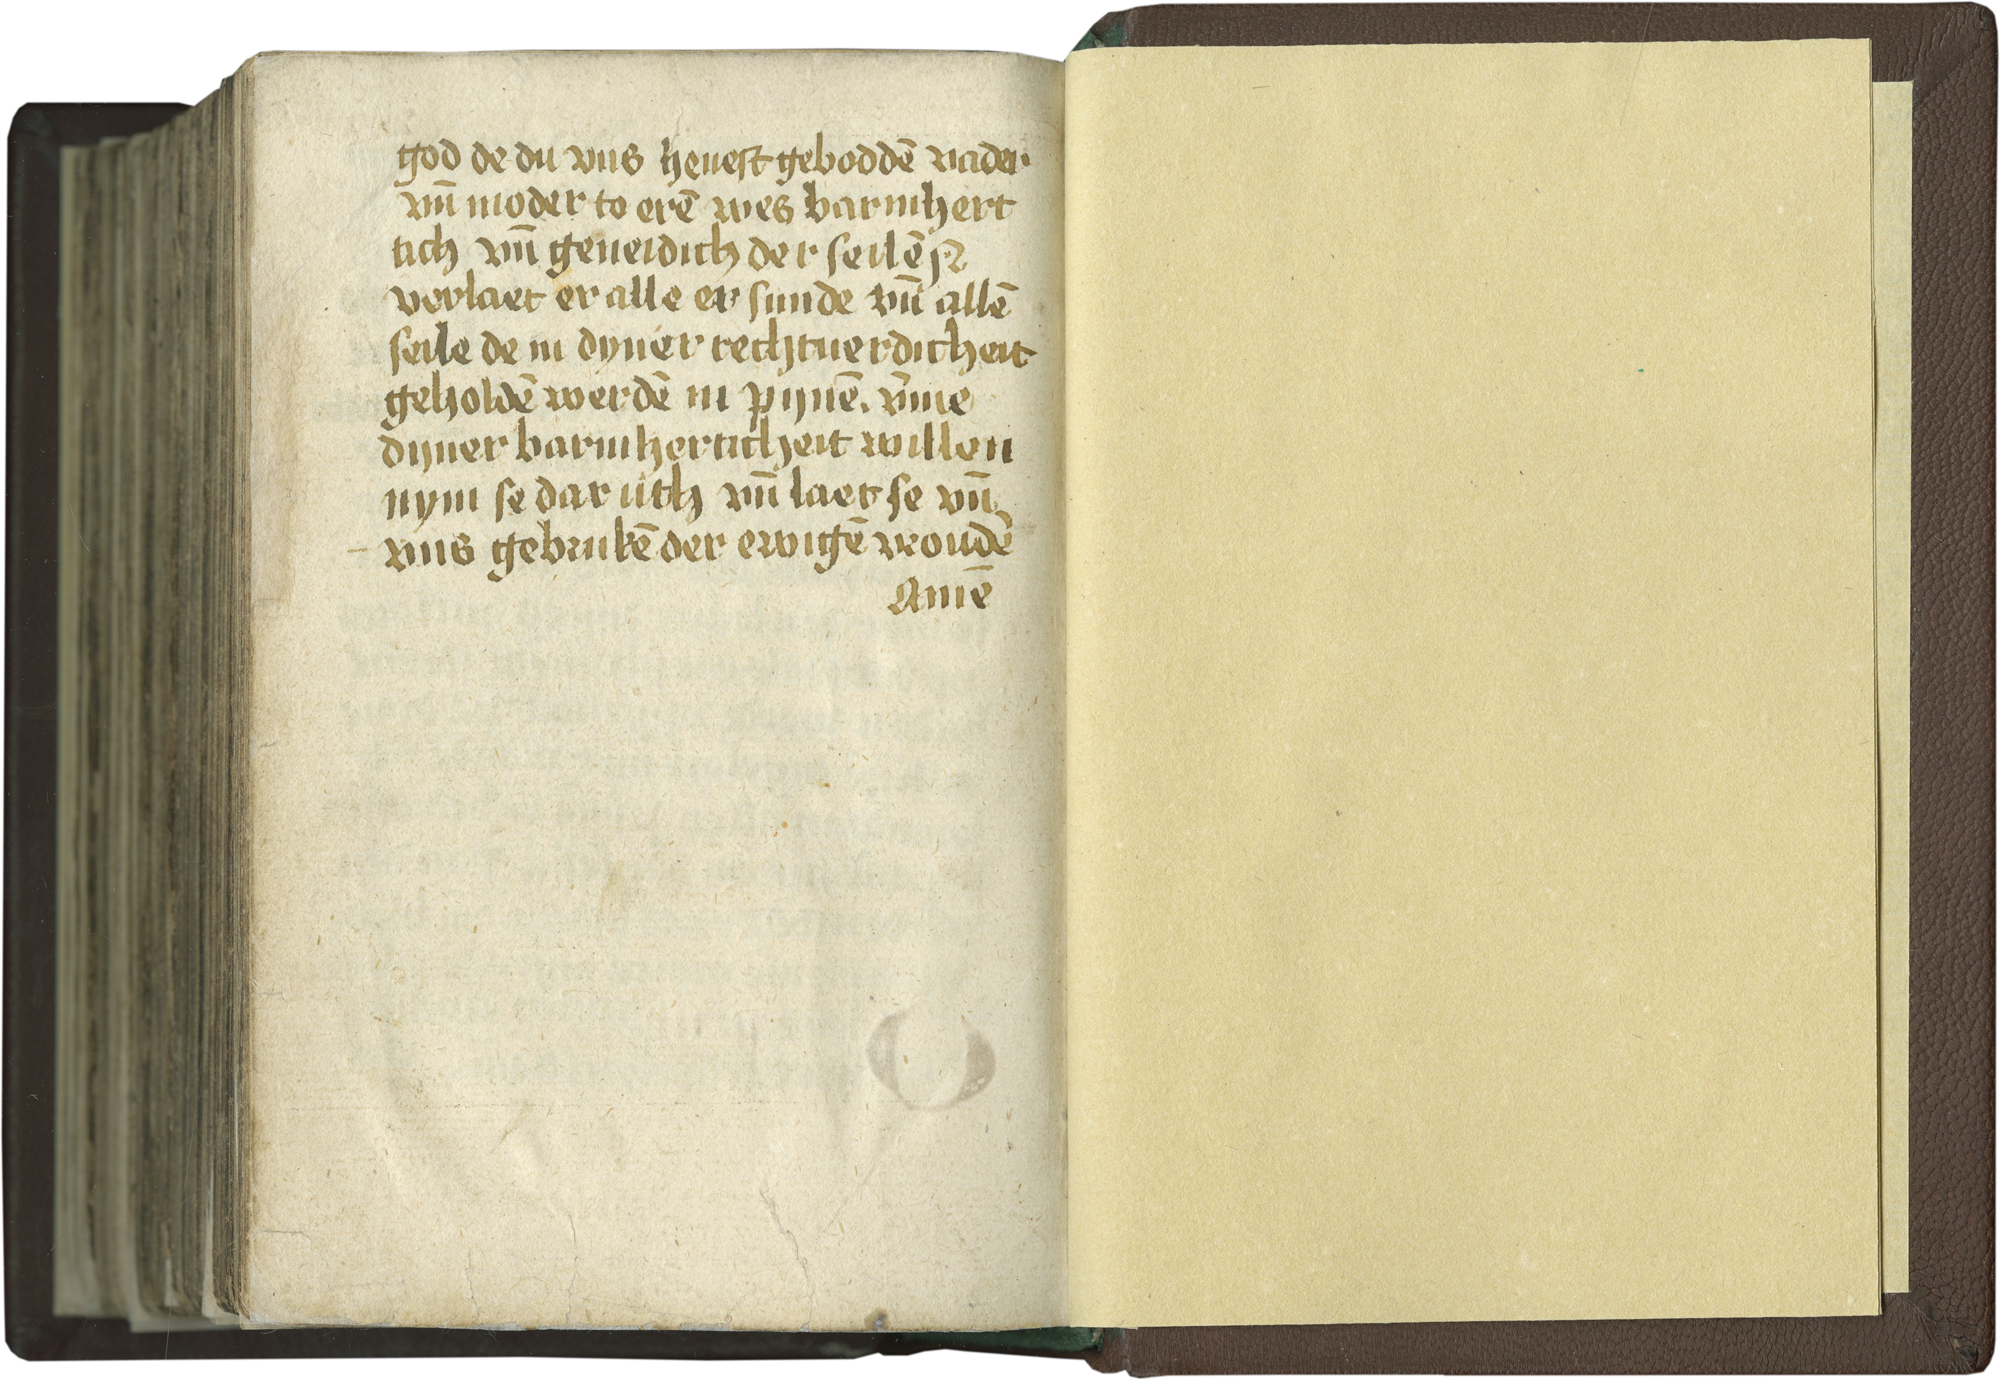 god de du vns heuest geboddē vader
vn̄ moder to erē wes barmhert
tich vn̄ geneidich der seilē
verlaet er alle er sunde vn̄ allē
seile de in dyner rechtuerdicheit
geholdē werdē in pynē. v̄me
dyner barmherticheit willen
nym se dar uth vn̄ laet se vn̄
vns gebrukē der ewigē vroudē
Amē